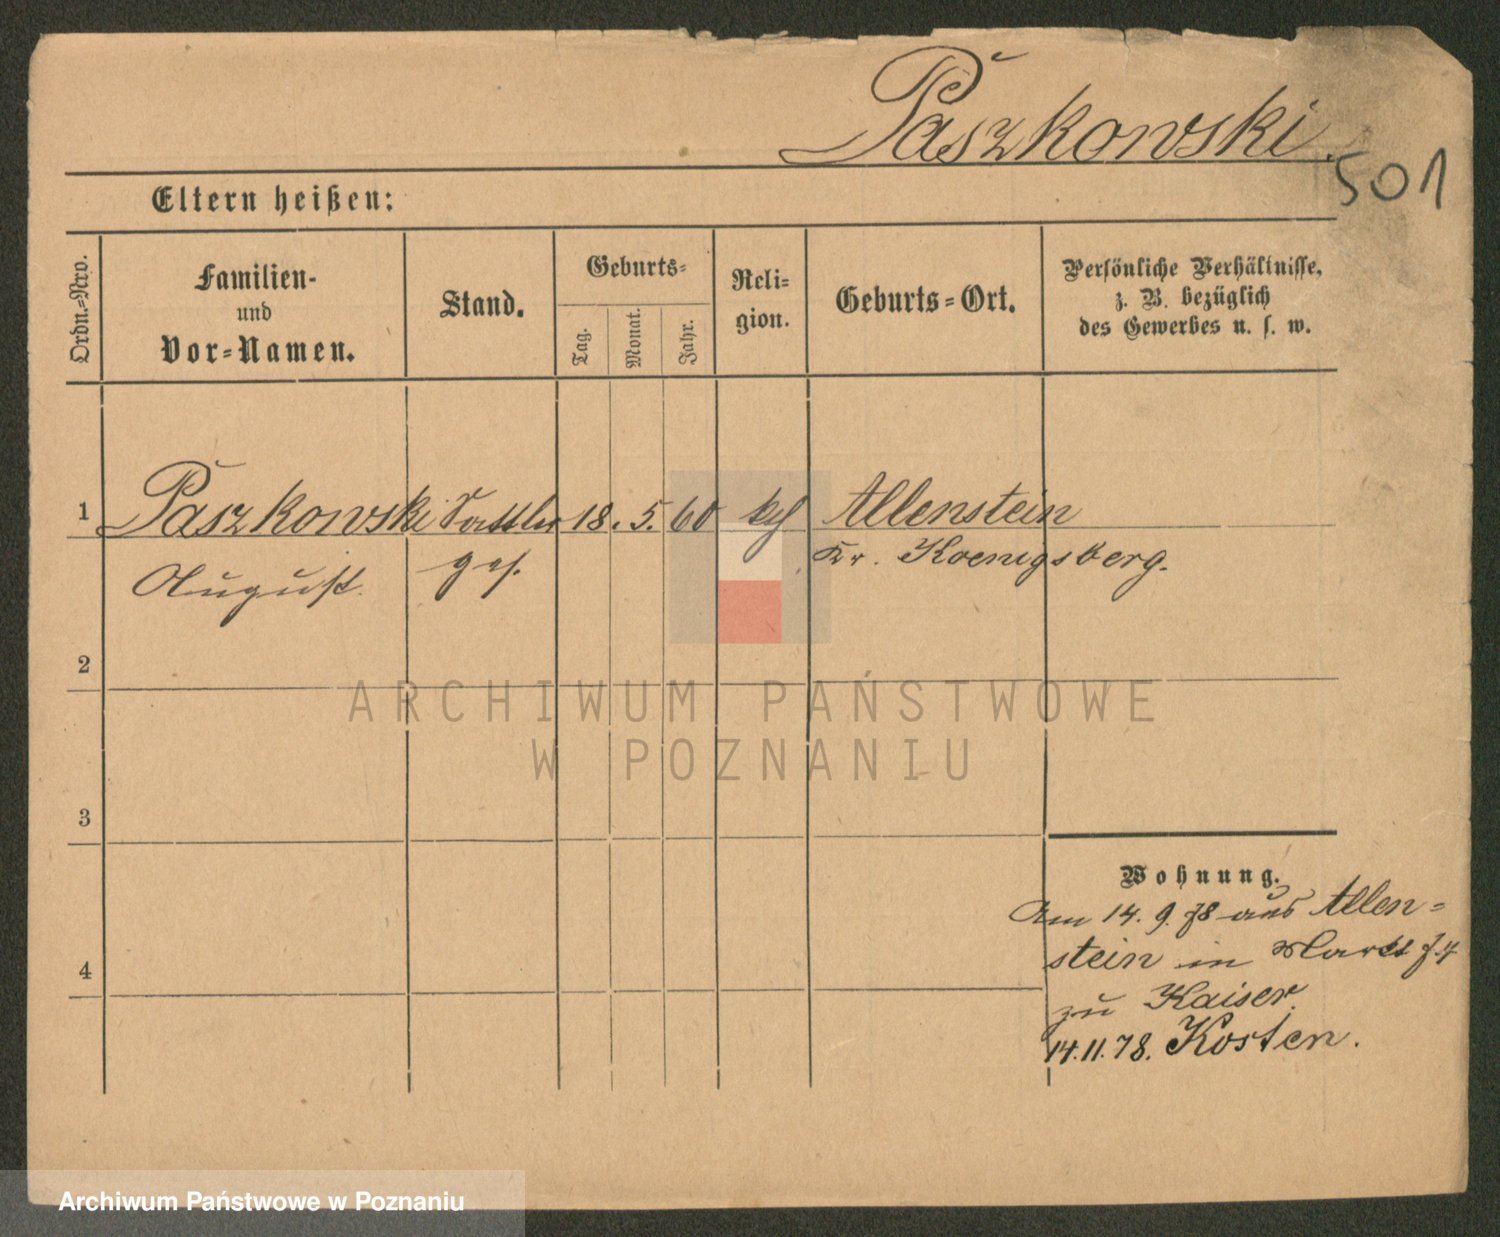 Paszkowski.
501
Eltern heißen:
Ordn.-Nro.
Familien-
und
Vor-Namen.
Stand.
Geburts-
Tag.
Monat.
Jahr.
Reli-
gion.
Geburts-Ort.
Persönliche Verhältnisse,
z. B. bezüglich
des Gewerbes u. s. w.
1 Paszkowski Sattler 18. 5. 60 kth Allenstein
August. ges. Kr. Koenigsberg.
2
ARCHIWUM PAŃSTWOWE
W POZNANIU
3
Wohnung.
Am 14. 9. 78 aus Allen-
stein in Markt 74
4
zu Kaiser.
14.11.78. Kosten.
Archiwum Państwowe w Poznaniu